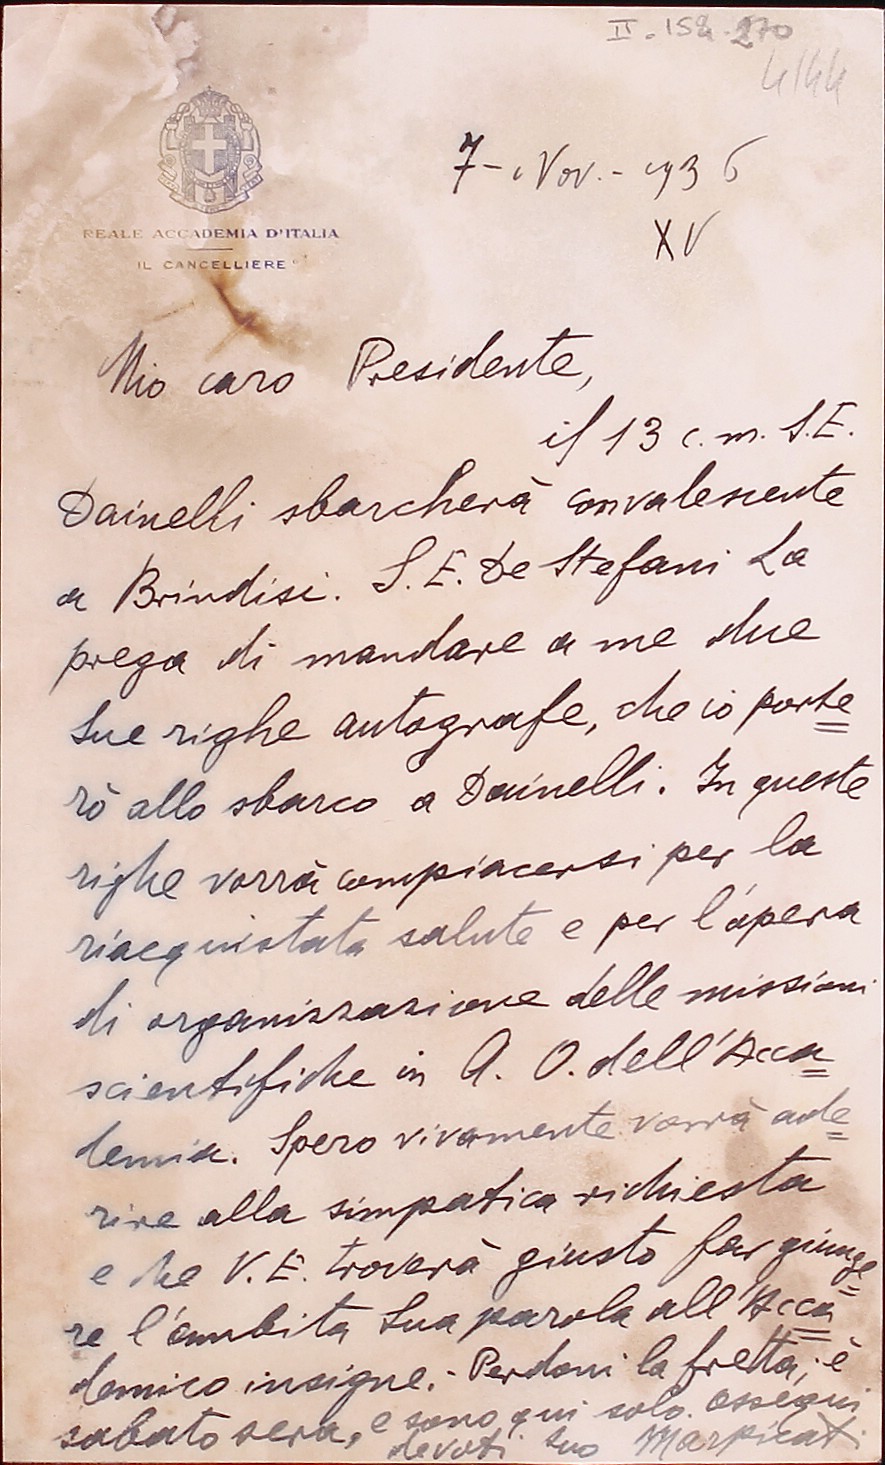 II. 152. 270
4144
REALE ACCADEMIA D'ITALIA
IL CANCELLIERE
7 - Nov. - 1936
XV
Mio caro Presidente,
il 13 c. m. S. E.
Dainelli sbarcherà convalescente
a Brindisi. S. E. De Stefani La
prega di mandare a me due
Sue righe autografe, che io porte=
rò allo sbarco a Dainelli. In queste
righe vorrà compiacersi per la
riacquistata salute e per l'opera
di organizzazione delle missioni
scientifiche in A. O. dell'Acca=
demia. Spero vivamente vorrà ade=
rire alla simpatica richiesta
e che V. E. troverà giusto far giunge=
re l'ambita Sua parola all'Acca=
demico insigne. - Perdoni la fretta; è
sabato sera, e sono qui solo. Ossequi
devoti Suo Marpicati